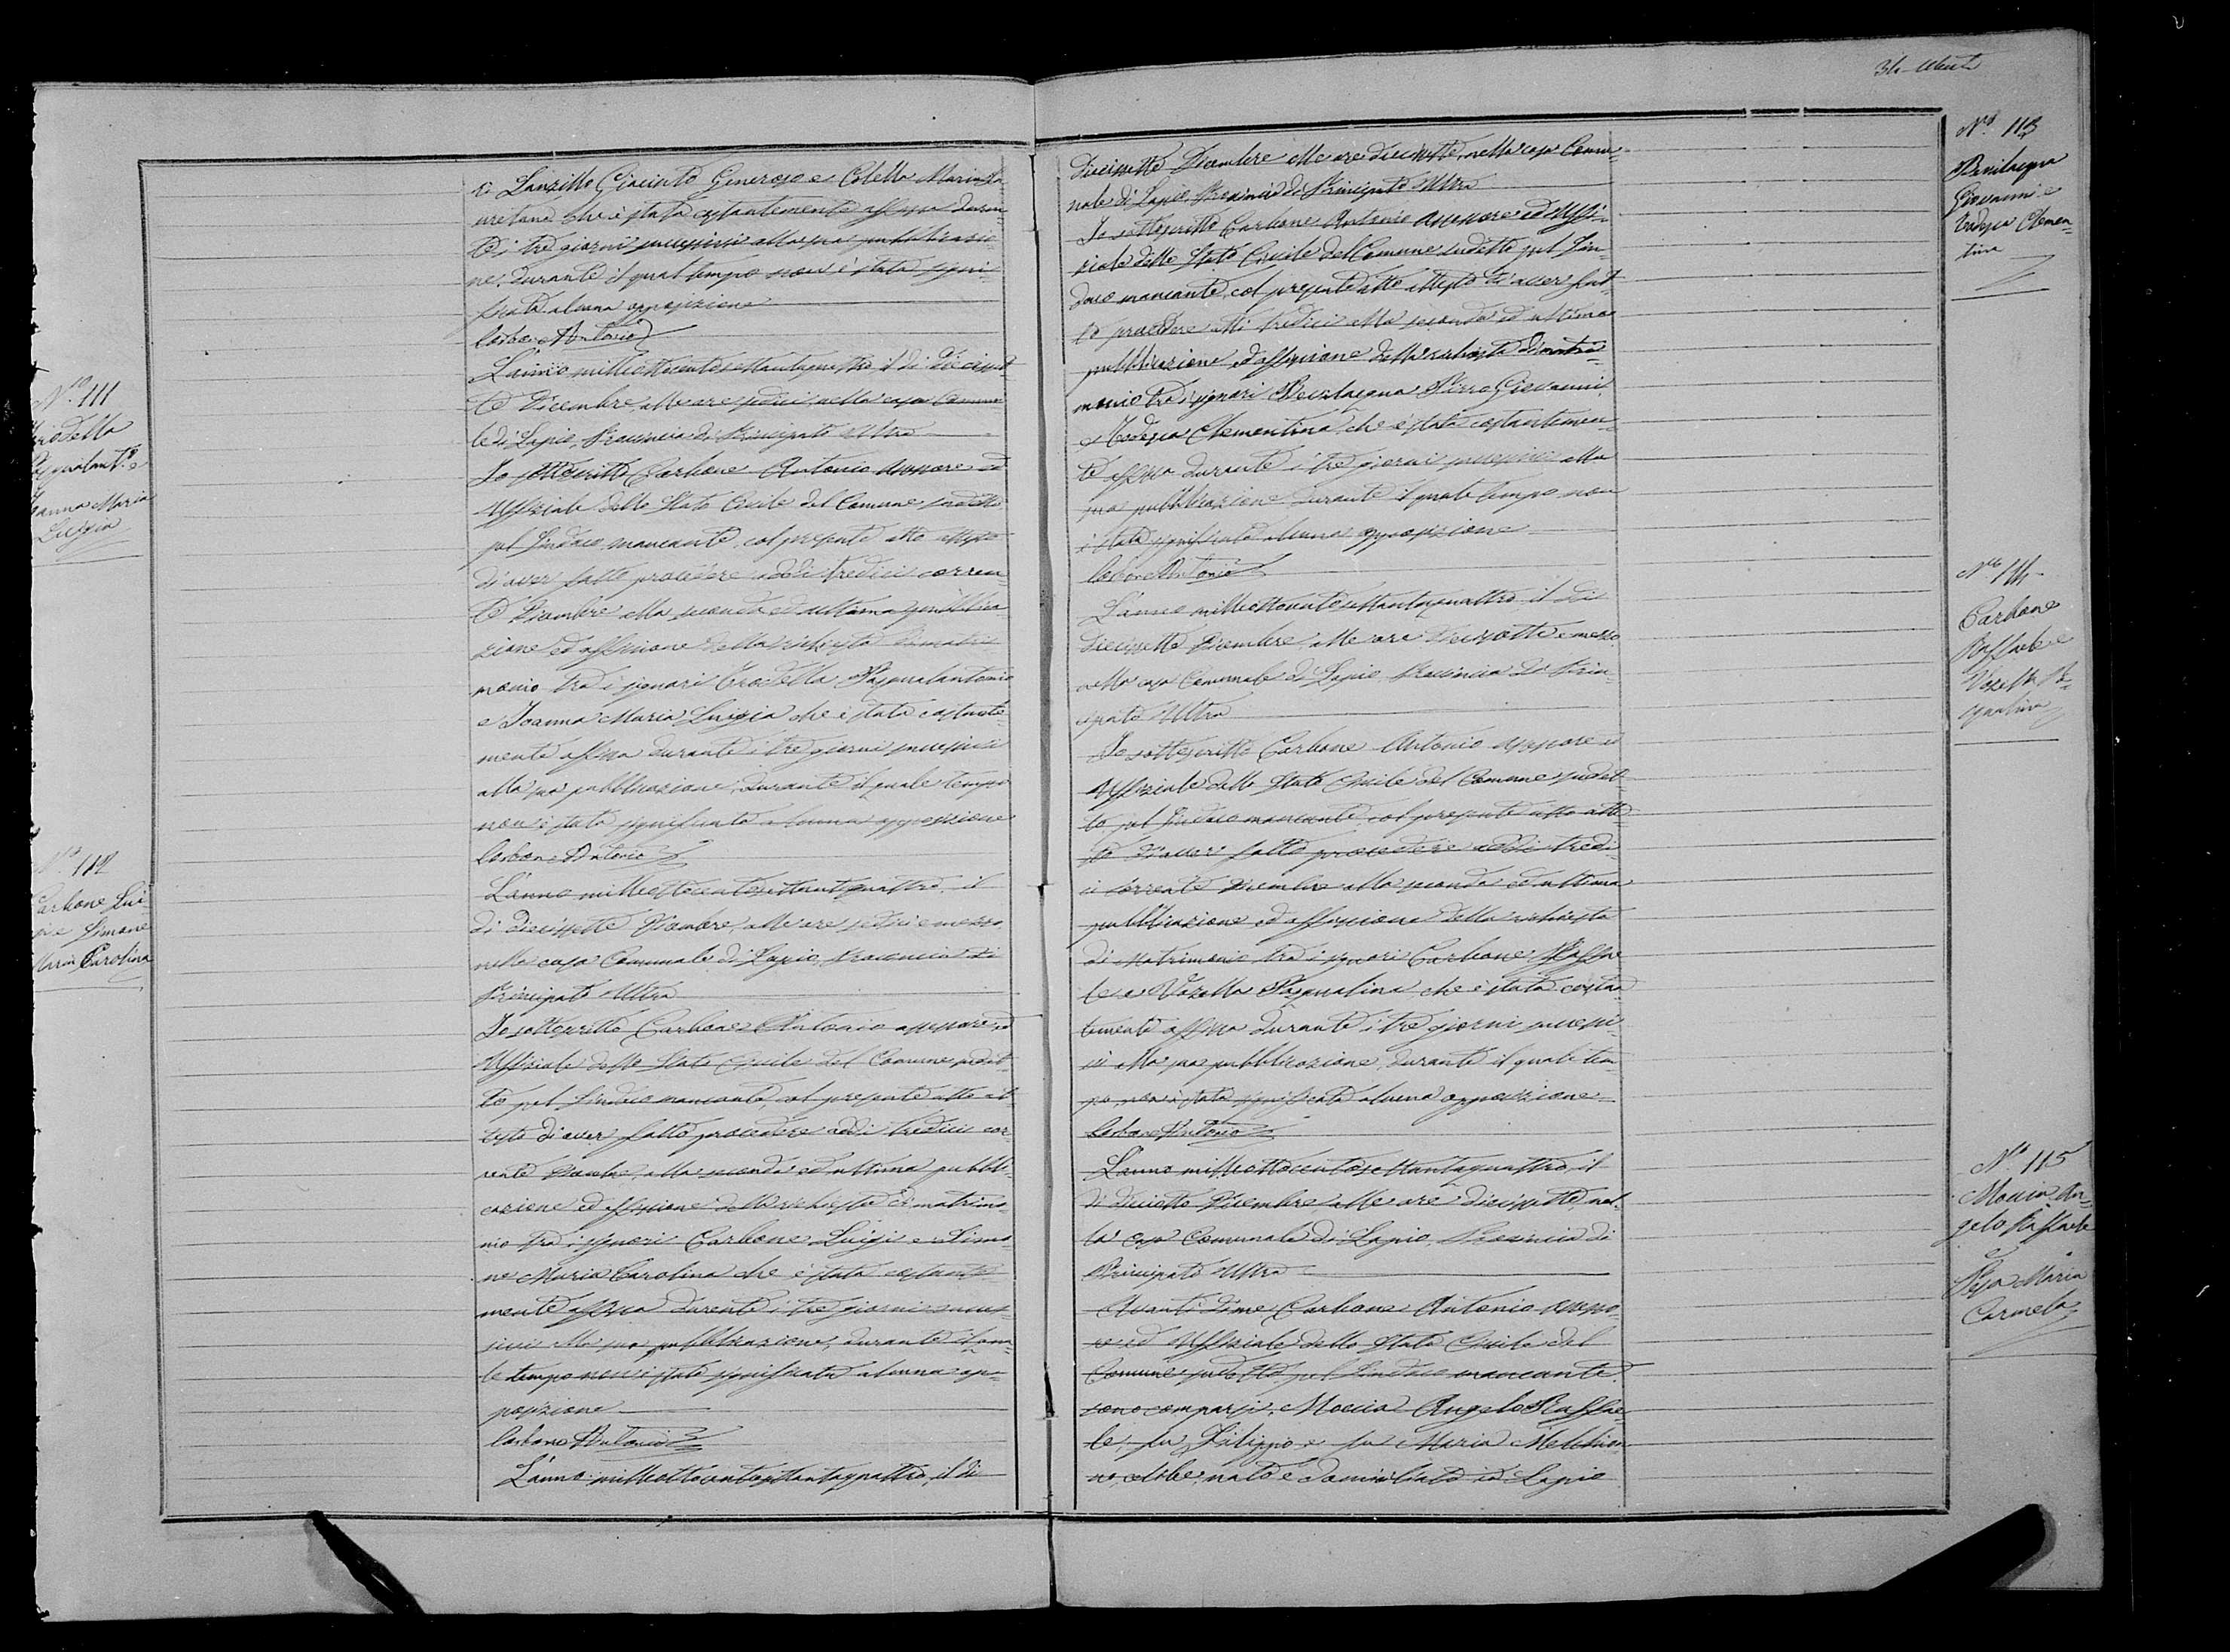 di Lanzillo Giacinto Generoso e Coletta Maria La
uretana che è stata costantemente affissa duran
te i tre giorni successivi alla sua pubblicazio
ne, durante il qual tempo non è stata signi
ficata alcuna opposizione
Carbone Antonio
N.º 111
Pasqualant.º e
Joanna Maria
Luigia
L'anno milleottocentosettantaquattro il di diecisset
te Dicembre, alle ore sedici, nella casa Comuna
le di Lapio, Provincia di Principato Ultra
Io sottoscritto Carbone Antonio assessore ed
Uffiziale dello Stato Civile del Comune sudetto
pel Sindaco mancante, col presente atto attesto
di aver fatto procedere addì tredici corren
te Dicembre alla seconda ed ultima pubblica
zione ed affissione della richiesta di matri
monio tra i signori Pasqualantonio
e Joanna Maria Luigia che è stata costante
mente affissa durante i tre giorni successivi
alla sua pubblicazione, durante il quale tempo
non è stata significata alcuna opposizione
Carbone Antonio
N.º 112
Carbone Lui
gi e Simone
Maria Carolina
L'anno milleottocentosettantaquattro, il
di diecissette Dicembre, alle ore sedici e mezzo
nella casa Comunale di Lapio, Provincia di
Principato Ultra
Io sottoscritto Carbone Antonio assessore, ed
Uffiziale dello Stato Civile del Comune sudet
to pel Sindaco mancante, col presente atto at
testo di aver fatto procedere addì tredici cor
rente Dicembre, alla seconda ed ultima pubbli
cazione ed affissione della richiesta di matrimo
nio tra i signori Carbone Luigi e Simo
ne Maria Carolina che è stata costante
mente affissa durante i tre giorni succes
sivi alla sua pubblicazione, durante il qua
le tempo non è stata significata alcuna op
posizione
Carbone Antonio
L'anno milleottocentosettantaquattro, il di
N.º 113
Bevilacqua
Giovanni e
Clemen
tina
diecissette Dicembre alle ore diecissette, nella casa Comu
nale di Lapio, Provincia di Principato Ultra
Io sottoscritto Carbone Antonio assessore ed Uffi
ziale dello Stato Civile del Comune sudetto pel Sin
daco mancante, col presente atto attesto di aver fat
to procedere alli tredici alla seconda ed ultima
pubblicazione ed affissione della richiesta di matri
monio tra i signori Bevilacqua Giovanni
e Clementina che è stata costantemen
te affissa durante i tre giorni successivi alla
sua pubblicazione durante il quale tempo non
è stata significata alcuna opposizione
Carbone Antonio
N.º 114
Carbone
Raffaele e
Vozella Pa
squalina
L'anno milleottocentosettantaquattro il di
diecissette Dicembre, alle ore diecissette e mezzo
nella casa Comunale di Lapio Provincia di Prin
cipato Ultra
Io sottoscritto Carbone Antonio assessore ed
Uffiziale dello Stato Civile del Comune sudet
to pel Sindaco mancante, col presente atto atte
sto d'aver fatto procedere addì tredi
ci corrente Dicembre alla seconda ed ultima
pubblicazione ed affissione della richiesta
di matrimonio tra i signori Carbone Raffae
le e Vozella Pasqualina che è stata costan
temente affissa durante i tre giorni successi
vi alla sua pubblicazione, durante il quale tem
po, non è stata significata alcuna opposizione
Carbone Antonio
N.º 115
Moccia An
gelo Raffaele
e
Maria
Carmela
L'anno milleottocentosettantaquattro, il
di dieciotto Dicembre, alle ore diecissette, nel
la casa Comunale di Lapio, Provincia di
Principato Ultra
Avanti di me Carbone Antonio assesso
re ed Uffiziale dello Stato Civile del
Comune sudetto pel Sindaco mancante
sono comparsi, Moccia Angelo Raffae
le, fu Filippo e fu Maria Melchion
no, celibe, nato e domiciliato in Lapio